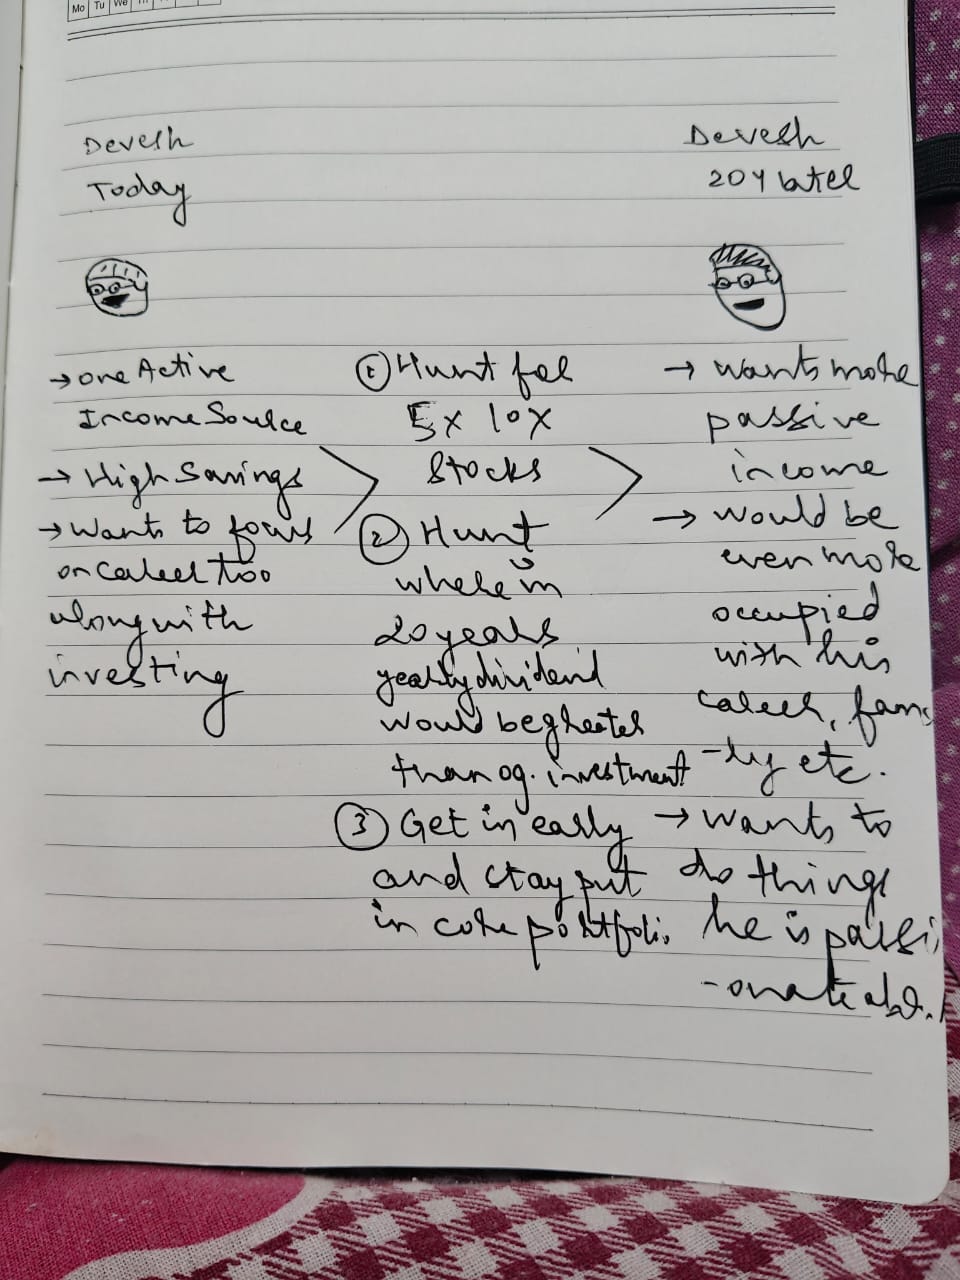 Mo Tu We
Devesh
Today
→ one Active
Income Source
→ High Savings
→ Wants to focus
on career too
along with
investing
① Hunt for
5x 10x
Stocks
② Hunt
where in
20 years
yearly dividend
would be greater
than og. investment
③ Get in early
and stay put
in core portfolio
Devesh
20Y later
→ wants more
passive
income
→ would be
even more
occupied
with his
career, fami
-ly etc.
→ wants to
do things
he is passi
-onate abt.